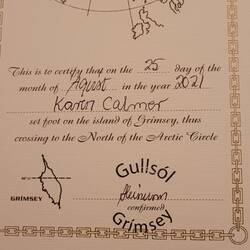 This is to certify that on the 25 day of the
month of August in the year 2021
Karin Calmor
set foot on the island of Grímsey, thus
crossing to the North of the Arctic Circle
GRÍMSEY
Gullsól
confirmed
Grímsey